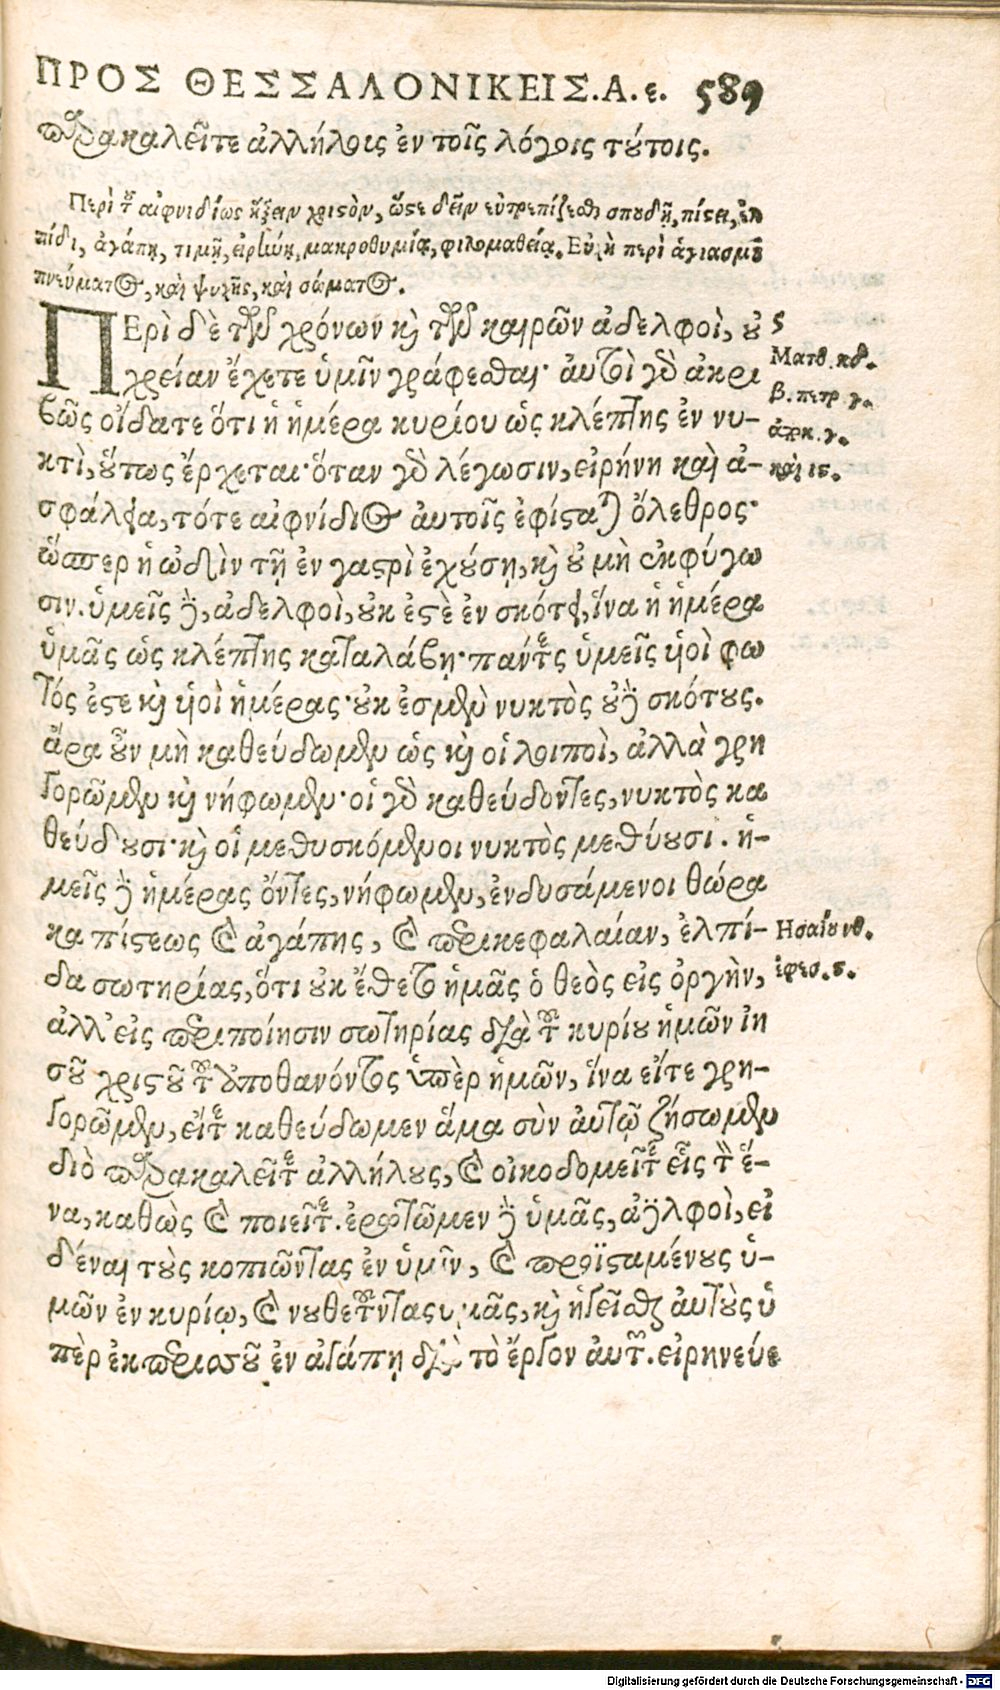 ΠΡΟΣ ΘΕΣΣΑΛΟΝΙΚΕΙΣ.Α.ε. 589
παρακαλεῖτε ἀλλήλοις ἐν τοῖς λόγοις τούτοις.
Περὶ τοῦ αἰφνιδίως ἥξειν χριστὸν, ὥστε δεῖν εὐτρεπίζεσθαι σπουδῇ, πίστει, ἐλ
πίδι, ἀγάπῃ, τιμῇ, εἰρήνῃ, μακροθυμίᾳ, φιλομαθείᾳ. Εὐχὴ περὶ ἁγιασμοῦ
πνεύματος, καὶ ψυχῆς, καὶ σώματος.
ΠΕρὶ δὲ τῶν χρόνων καὶ τῶν καιρῶν ἀδελφοὶ, οὐ
χρείαν ἔχετε ὑμῖν γράφεσθαι· αὐτοὶ γὰρ ἀκρι
βῶς οἴδατε ὅτι ἡ ἡμέρα κυρίου ὡς κλέπτης ἐν νυ-
κτὶ, οὕτως ἔρχεται· ὅταν γὰρ λέγωσιν, εἰρήνη καὶ ἀ-
σφάλεια, τότε αἰφνίδιος αὐτοῖς ἐφίσταται ὄλεθρος·
ὥσπερ ἡ ὠδὶν τῇ ἐν γαστρὶ ἐχούσῃ, καὶ οὐ μὴ ἐκφύγω
σιν. ὑμεῖς δὲ, ἀδελφοὶ, οὐκ ἐστὲ ἐν σκότει, ἵνα ἡ ἡμέρα
ὑμᾶς ὡς κλέπτης καταλάβῃ· πάντες ὑμεῖς υἱοὶ φω
τός ἐστε καὶ υἱοὶ ἡμέρας· οὐκ ἐσμὲν νυκτὸς οὐδὲ σκότους.
ἄρα οὖν μὴ καθεύδωμεν ὡς καὶ οἱ λοιποὶ, ἀλλὰ γρη
γορῶμεν καὶ νήφωμεν· οἱ γὰρ καθεύδοντες, νυκτὸς κα
θεύδουσι· καὶ οἱ μεθυσκόμενοι νυκτὸς μεθύουσι. ἡ-
μεῖς δὲ ἡμέρας ὄντες, νήφωμεν, ἐνδυσάμενοι θώρα
κα πίστεως καὶ ἀγάπης, καὶ περικεφαλαίαν, ἐλπί-
δα σωτηρίας, ὅτι οὐκ ἔθετο ἡμᾶς ὁ θεὸς εἰς ὀργὴν,
ἀλλ' εἰς περιποίησιν σωτηρίας διὰ τοῦ κυρίου ἡμῶν ἰη
σοῦ χριστοῦ τοῦ ἀποθανόντος ὑπὲρ ἡμῶν, ἵνα εἴτε γρη-
γορῶμεν, εἴτε καθεύδωμεν ἅμα σὺν αὐτῷ ζήσωμεν
διὸ παρακαλεῖτε ἀλλήλους, καὶ οἰκοδομεῖτε εἷς τὸν ἕ-
να, καθὼς καὶ ποιεῖτε. ἐρωτῶμεν δὲ ὑμᾶς, ἀδελφοὶ, εἰ
δέναι τοὺς κοπιῶντας ἐν ὑμῖν, καὶ προϊσταμένους ὑ-
μῶν ἐν κυρίῳ, καὶ νουθετοῦντας ὑμᾶς, καὶ ἡγεῖσθαι αὐτοὺς ὑ
πὲρ ἐκ περισσοῦ ἐν ἀγάπῃ διὰ τὸ ἔργον αὐτῶν. εἰρηνεύε
5
Ματθ. κδ.
β. πετρ. γ.
ἀποκ. γ.
καὶ ις.
Ησαΐου νθ.
ἐφεσ. ς.
Digitalisierung gefördert durch die Deutsche Forschungsgemeinschaft - DFG